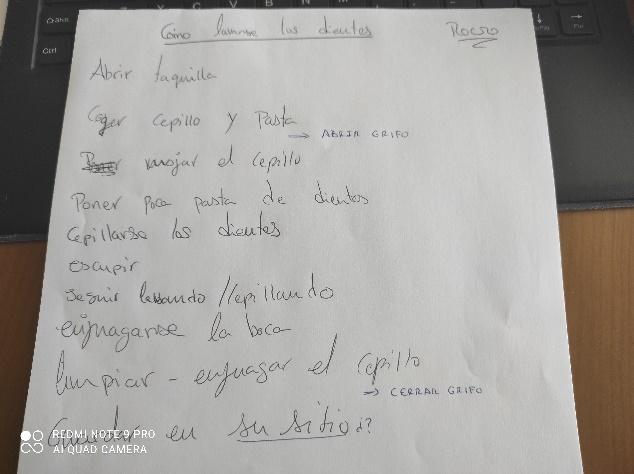 Cómo lavarse los dientes
Rocío
Abrir taquilla
Coger cepillo y Pasta
→ ABRIR GRIFO
mojar el cepillo
Poner poca pasta de dientes
Cepillarse los dientes
escupir
seguir lavando //cepillando
enjuagarse la boca
limpiar - enjuagar el cepillo
→ CERRAR GRIFO
Guardar en su sitio ¿?
REDMI NOTE 9 PRO
AI QUAD CAMERA
Ctrl